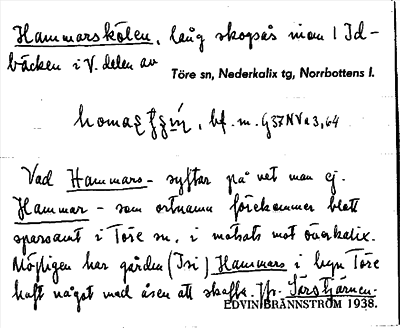 Hammarskölen, låg skogsås inom 1 Id-
bäcken i V. delen av
Töre sn, Nederkalix tg, Norrbottens l.
bf. m. G37NVa3,64
Vad Hammars- syftar på vet man ej.
Hammar- som ortnamn förekommer blott
sparsamt i Töre sn, i motsats mot Överkalix.
Möjligen har gården (Tri) Hammars i byn Töre
haft något med åsen att skaffa. Jfr. Sörstjärnen.
EDVIN BRÄNNSTRÖM 1938.